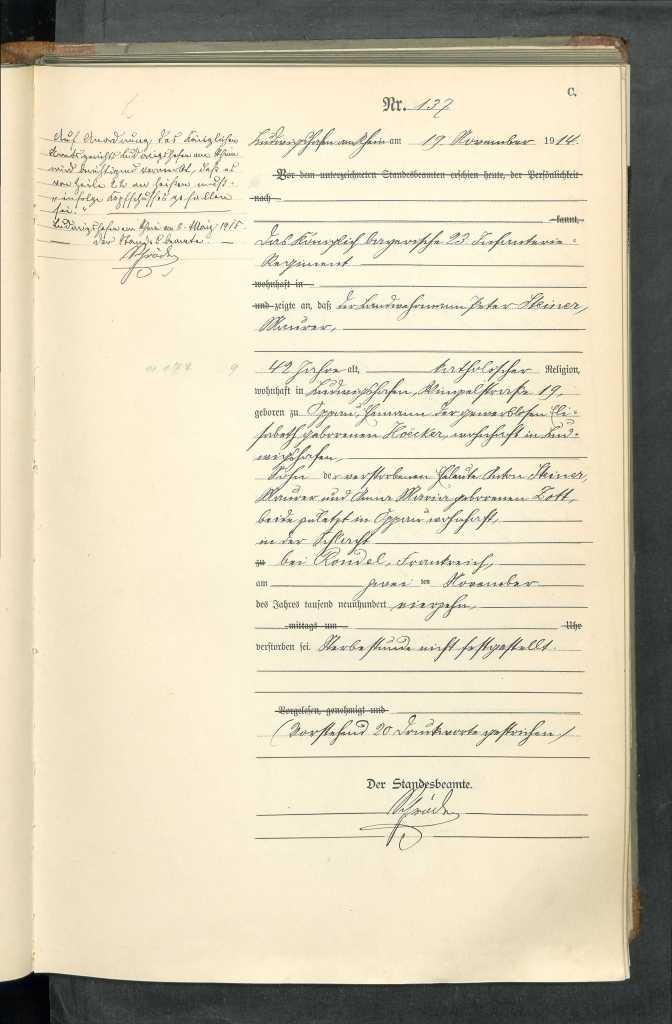 C.
Nr. 137
Ludwigshafen am Rhein am 19. November 1914.
Vor dem unterzeichneten Standesbeamten erschien heute, der Persönlichkeit
nach
kannt,
Das Königlich bayerische 23. Infanterie-
Regiment
wohnhaft in
und zeigte an, daß der Landwehrmann Peter Steiner,
Maurer,
42 Jahre alt, katholischer Religion,
wohnhaft in Ludwigshafen, 19,
geboren zu Oppau, Ehemann der gewerblosen Eli-
sabeth geborenen Hoecker, wohnhaft in Lud-
wigshafen,
Sohn der verstorbenen Eheleute Anton Steiner,
Maurer und Anna Maria geborenen Zott,
beide zuletzt in Oppau wohnhaft,
in der Schlacht
zu bei Rondel, Frankreich,
am zwei ten November
des Jahres tausend neunhundert vierzehn,
mittags um Uhr
verstorben sei. Sterbestunde nicht festgestellt.
Vorgelesen, genehmigt und
(Vorstehend 20 Druckworte gestrichen)
Der Standesbeamte.
Schräder
Auf Anordnung des Königlichen
Amtsgerichts Ludwigshafen am Rhein
wird berichtigend vermerkt, daß es
heißen muß:
"infolge Kopfschusses gefallen
sei."
Ludwigshafen am Rhein am 5. März 1915.
Der Standesbeamte.
Schräder